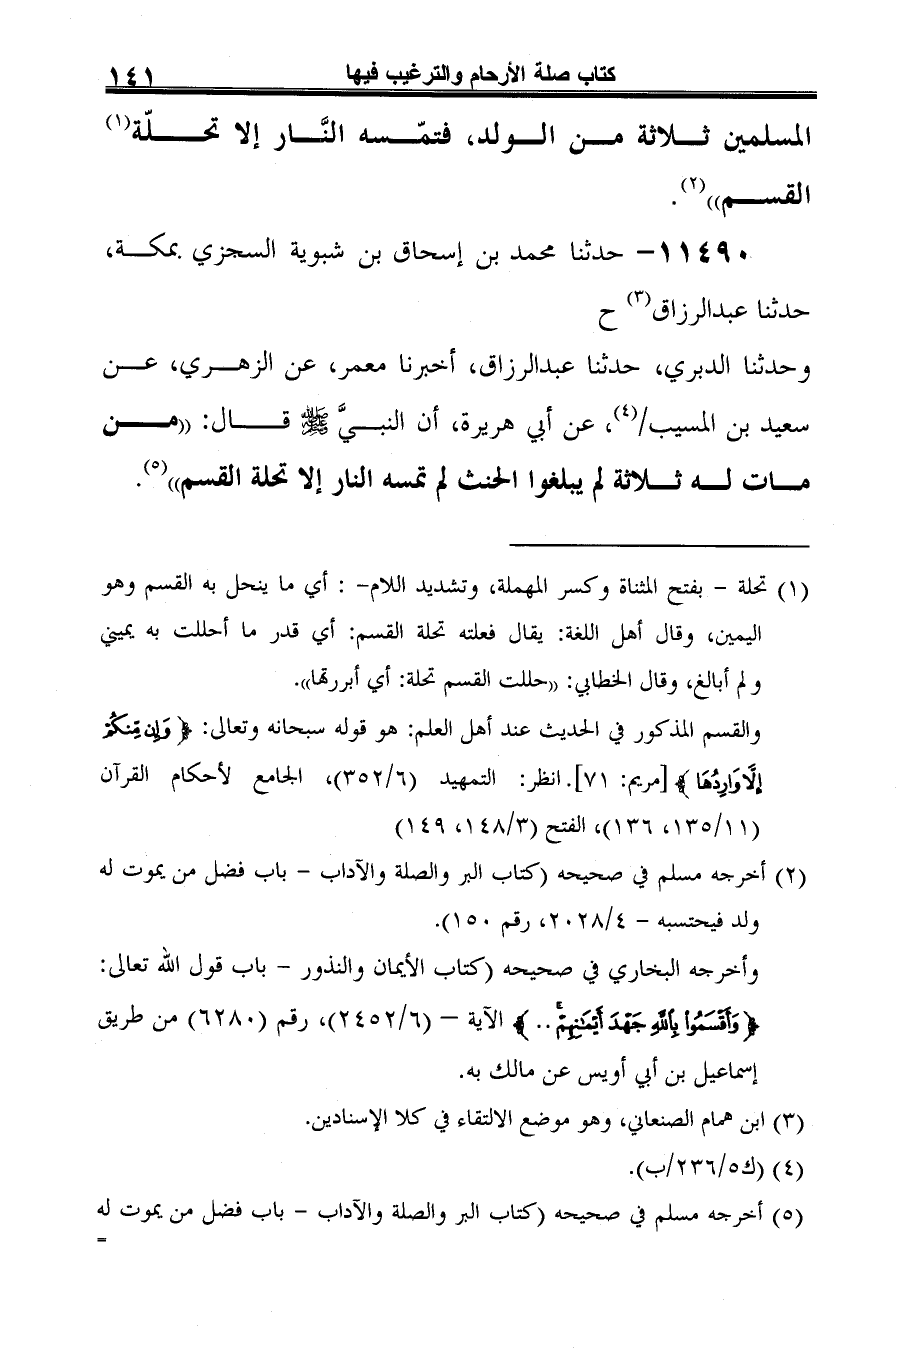 كتاب صلة الأرحام والترغيب فيها ١٤١
المسلمين ثـلاثة مـن الـولد، فتمّـسه النَّـار إلا تحـلّة(١)
القسـم»(٢).
١١٤٩٠– حدثنا محمد بن إسحاق بن شبوية السجزي بمكـة،
حدثنا عبدالرزاق(٣) ح
وحدثنا الدبري، حدثنا عبدالرزاق، أخبرنا معمر، عن الزهـري، عـن
سعيد بن المسيب/(٤)، عن أبي هريرة، أن النبـيَّ ﷺ قـال: «مـن
مـات لـه ثـلاثة لم يبلغوا الحنث لم تمسه النار إلا تحلة القسم»(٥).
(١) تحلة – بفتح المثناة وكسر المهملة، وتشديد اللام– : أي ما ينحل به القسم وهو
اليمين، وقال أهل اللغة: يقال فعلته تحلة القسم: أي قدر ما أحللت به يميني
ولم أبالغ، وقال الخطابي: «حللت القسم تحلة: أي أبررتها».
والقسم المذكور في الحديث عند أهل العلم: هو قوله سبحانه وتعالى: ﴿وَإِن مِّنكُمْ
إِلَّا وَارِدُهَا﴾ [مريم: ٧١]. انظر: التمهيد (٣٥٢/٦)، الجامع لأحكام القرآن
(١٣٥/١١، ١٣٦)، الفتح (١٤٨/٣، ١٤٩)
(٢) أخرجه مسلم في صحيحه (كتاب البر والصلة والآداب – باب فضل من يموت له
ولد فيحتسبه – ٢٠٢٨/٤، رقم ١٥٠).
وأخرجه البخاري في صحيحه (كتاب الأيمان والنذور – باب قول الله تعالى:
﴿وَأَقْسَمُوا بِاللَّهِ جَهْدَ أَيْمَانِهِمْ ..﴾ الآية – (٢٤٥٢/٦)، رقم (٦٢٨٠) من طريق
إسماعيل بن أبي أويس عن مالك به.
(٣) ابن همام الصنعاني، وهو موضع الالتقاء في كلا الإسنادين.
(٤) (ك٢٣٦/٥/ب).
(٥) أخرجه مسلم في صحيحه (كتاب البر والصلة والآداب – باب فضل من يموت له
=